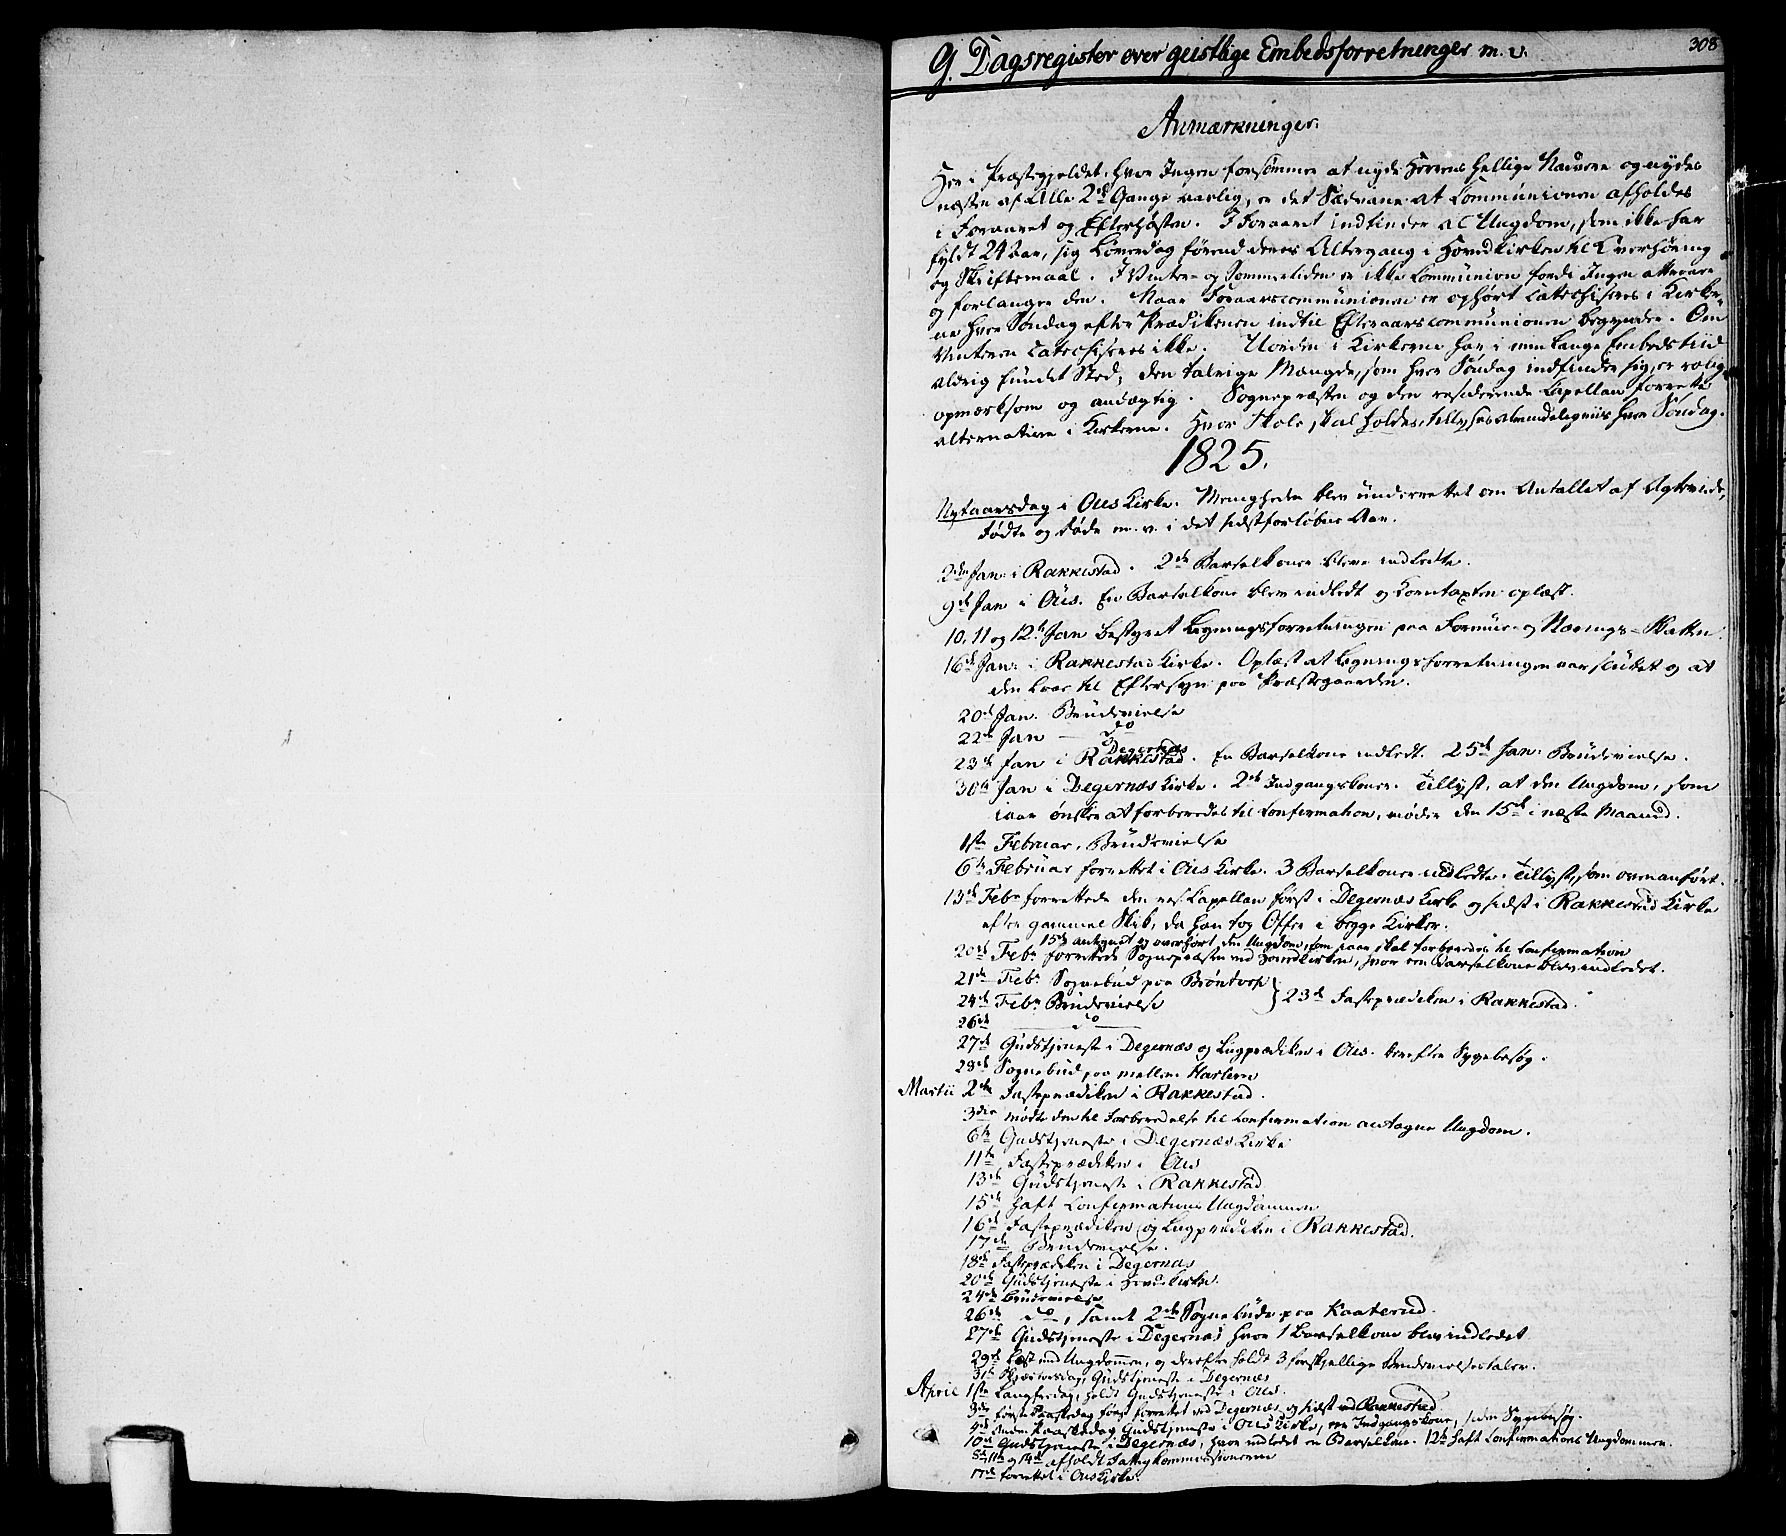 308
9. Dagsregister over geistlige Embedsforretninger m. v.
Anmærkninger.
Her i Præstegjeldet, hvor Ingen forsømmer at nyde Herrens hellige Nadvere og nydes
næsten af Alle 2de Gange aarlig, er det Sædvane at Communionen afholdes
i Foraaret og Efterhøsten. I Foraaret indfinder al Ungdom, som ikke har
fyldt 24 Aar, sig Løverdag førend deres Altergang i Hovedkirken til Overhøring
og Skriftemaal. I Vinter- og Sommertiden er ikke Communion fordi Ingen attraaer
og forlanger den. Naar Foraarscommunionen er ophørt Catechiseres i Kirker-
ne hver Søndag efter Prædikenen indtil Efteraarscommunionen begynder. Om
Vinteren Catechiseres ikke. Uorden i Kirkerne har i min lange Embedstiid
aldrig fundet Sted; den talrige Mængde, som hver Søndag indfinder sig, er rolig,
opmærksom og andægtig. Sognepræsten og den residerende Capellan forrette
alternative i Kirkerne. Hvor Skole skal holdes, tillyses almindeligviis hver Søndag.
1825.
Nytaarsdag i Øus Kirke. Menigheden blev underrettet om Antallet af Ægteviede,
Fødte og Døde m. v. i det sidstforløbne Aar.
2den Jan: i Rakkestad. 2de Barselkoner bleve indledte.
9de Jan i Øus. En Barselkone blev indledt og Korntaxten oplæst.
10, 11 og 12te Jan bestyret Ligningsforretningen paa Formue- og Nærings-Skatten.
16de Jan: i Rakkestad Kirke. Oplæst at Ligningsforretningen var sluttet og at
den laae til Eftersyn paa Præstegaarden.
20de Jan. Brudevielse
22de Jan — do
23de Jan i Degernæs Rakkestad. En Barselkone indledt. 25de Jan: Brudevielse.
30te Jan i Degernæs Kirke. 2de Indgangskoner. Tillyst, at den Ungdom, som
iaar ønsker at forberedes til Confirmation, møder den 15de i næste Maaned.
1ste Februar, Brudevielse
6te Februar forrettet i Øus Kirke. 3 Barselkoner indledte. Tillyst, som ovenanført.
13de Febr forrettede den res. Capellan først i Degernæs Kirke og sidst i Rakkestad Kirke
efter gammel Skik, da han tog Offer i begge Kirker.
15de antegnet og overhørt den Ungdom, som iaar skal forberedes til Confirmation
20de Febr forrettede Sognepræsten ved Hovedkirken, hvor een Barselkone blev indledet.
21de Febr. Sognebud paa Brøntorp
24de Febr Brudevielse } 23de Fasteprædiken i Rakkestad.
26de — do —
27de Gudstjeneste i Degernæs og Liigprædiken i Øus. derefter Sygebesøg.
28de Sognebud paa mellem Harlem
Martii 2den Fasteprædiken i Rakkestad.
3die mødte den til Forberedelse til Confirmation antagne Ungdom.
6te Gudstjeneste i Degernæs Kirke
11te Fasteprædiken i Øus
13de Gudstjeneste i Rakkestad
15de haft Confirmations Ungdommen
16de Fasteprædiken og Liigprædiken i Rakkestad.
17de Brudevielse.
18de Fasteprædiken i Degernæs
20de Gudstjeneste i Hovedkirken.
24de Brudevielse
26de do, samt 2de Sognebude paa Kaaterud.
27de Gudstjeneste i Degernæs hvor 1 Barselkone blev indledet
29de Læst med Ungdommen, og derefter holdt 3 forskjellige Brudevielsestaler.
31te Skjærtorsdag, Gudstjeneste i Degernæs
April 1ste Langfredag, holdt Gudstjeneste i Øus.
3die første Paaskedag først forrettet ved Degernæs og sidst ved Rakkestad
4de Anden Paaskedag Gudstjeneste i Øus Kirke, een Indgangskone, siden Sygebesøg.
10de Gudstjeneste i Degernæs, hvor indledet en Barselkone. 12te haft Confirmations Ungdommen.
5te 11te og 14de afholdt Fattigkommissionerne
17de forrettet i Øus Kirke.